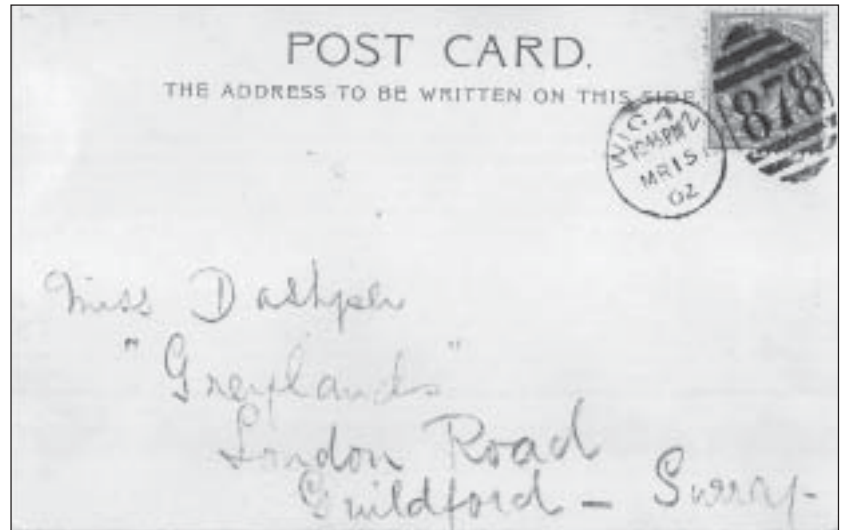 POST CARD.
THE ADDRESS TO BE WRITTEN ON THIS SIDE
878
WIGA
MR 15
02
Miss
"Greylands"
London Road
Guildford - Surrey-